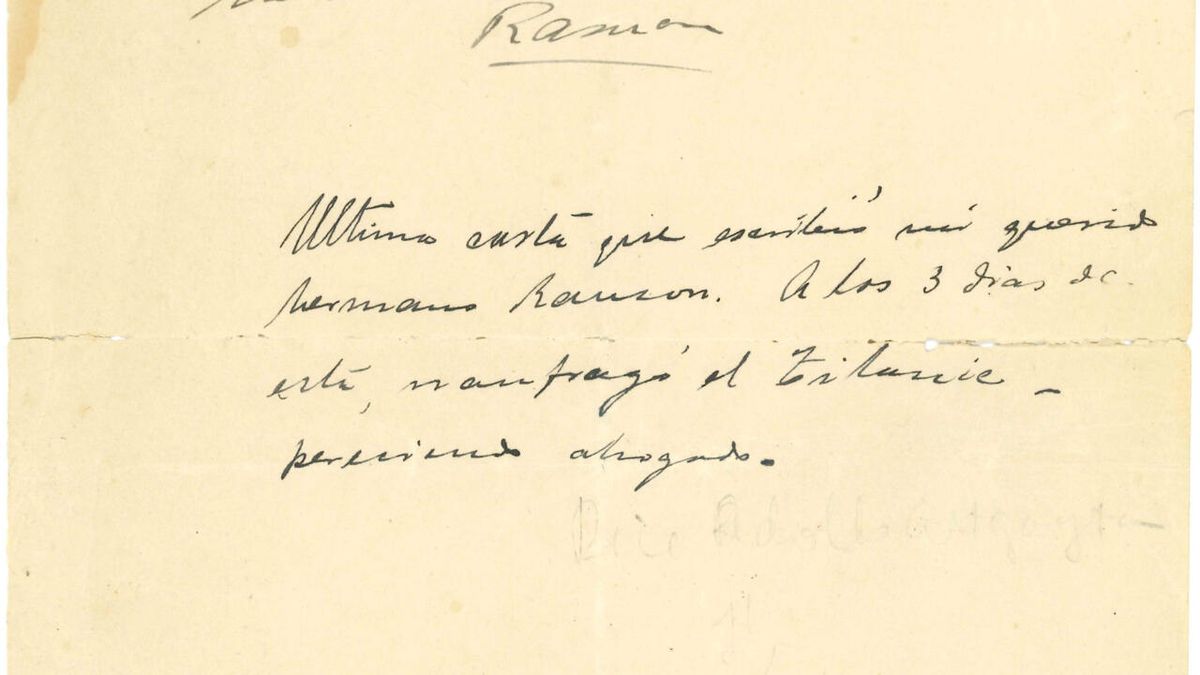 Ramon
Ultima carta que escribió mi querido
hermano Ramon. A los 3 dias de
esta, naufragó el Titanic –
pereciendo ahogado.